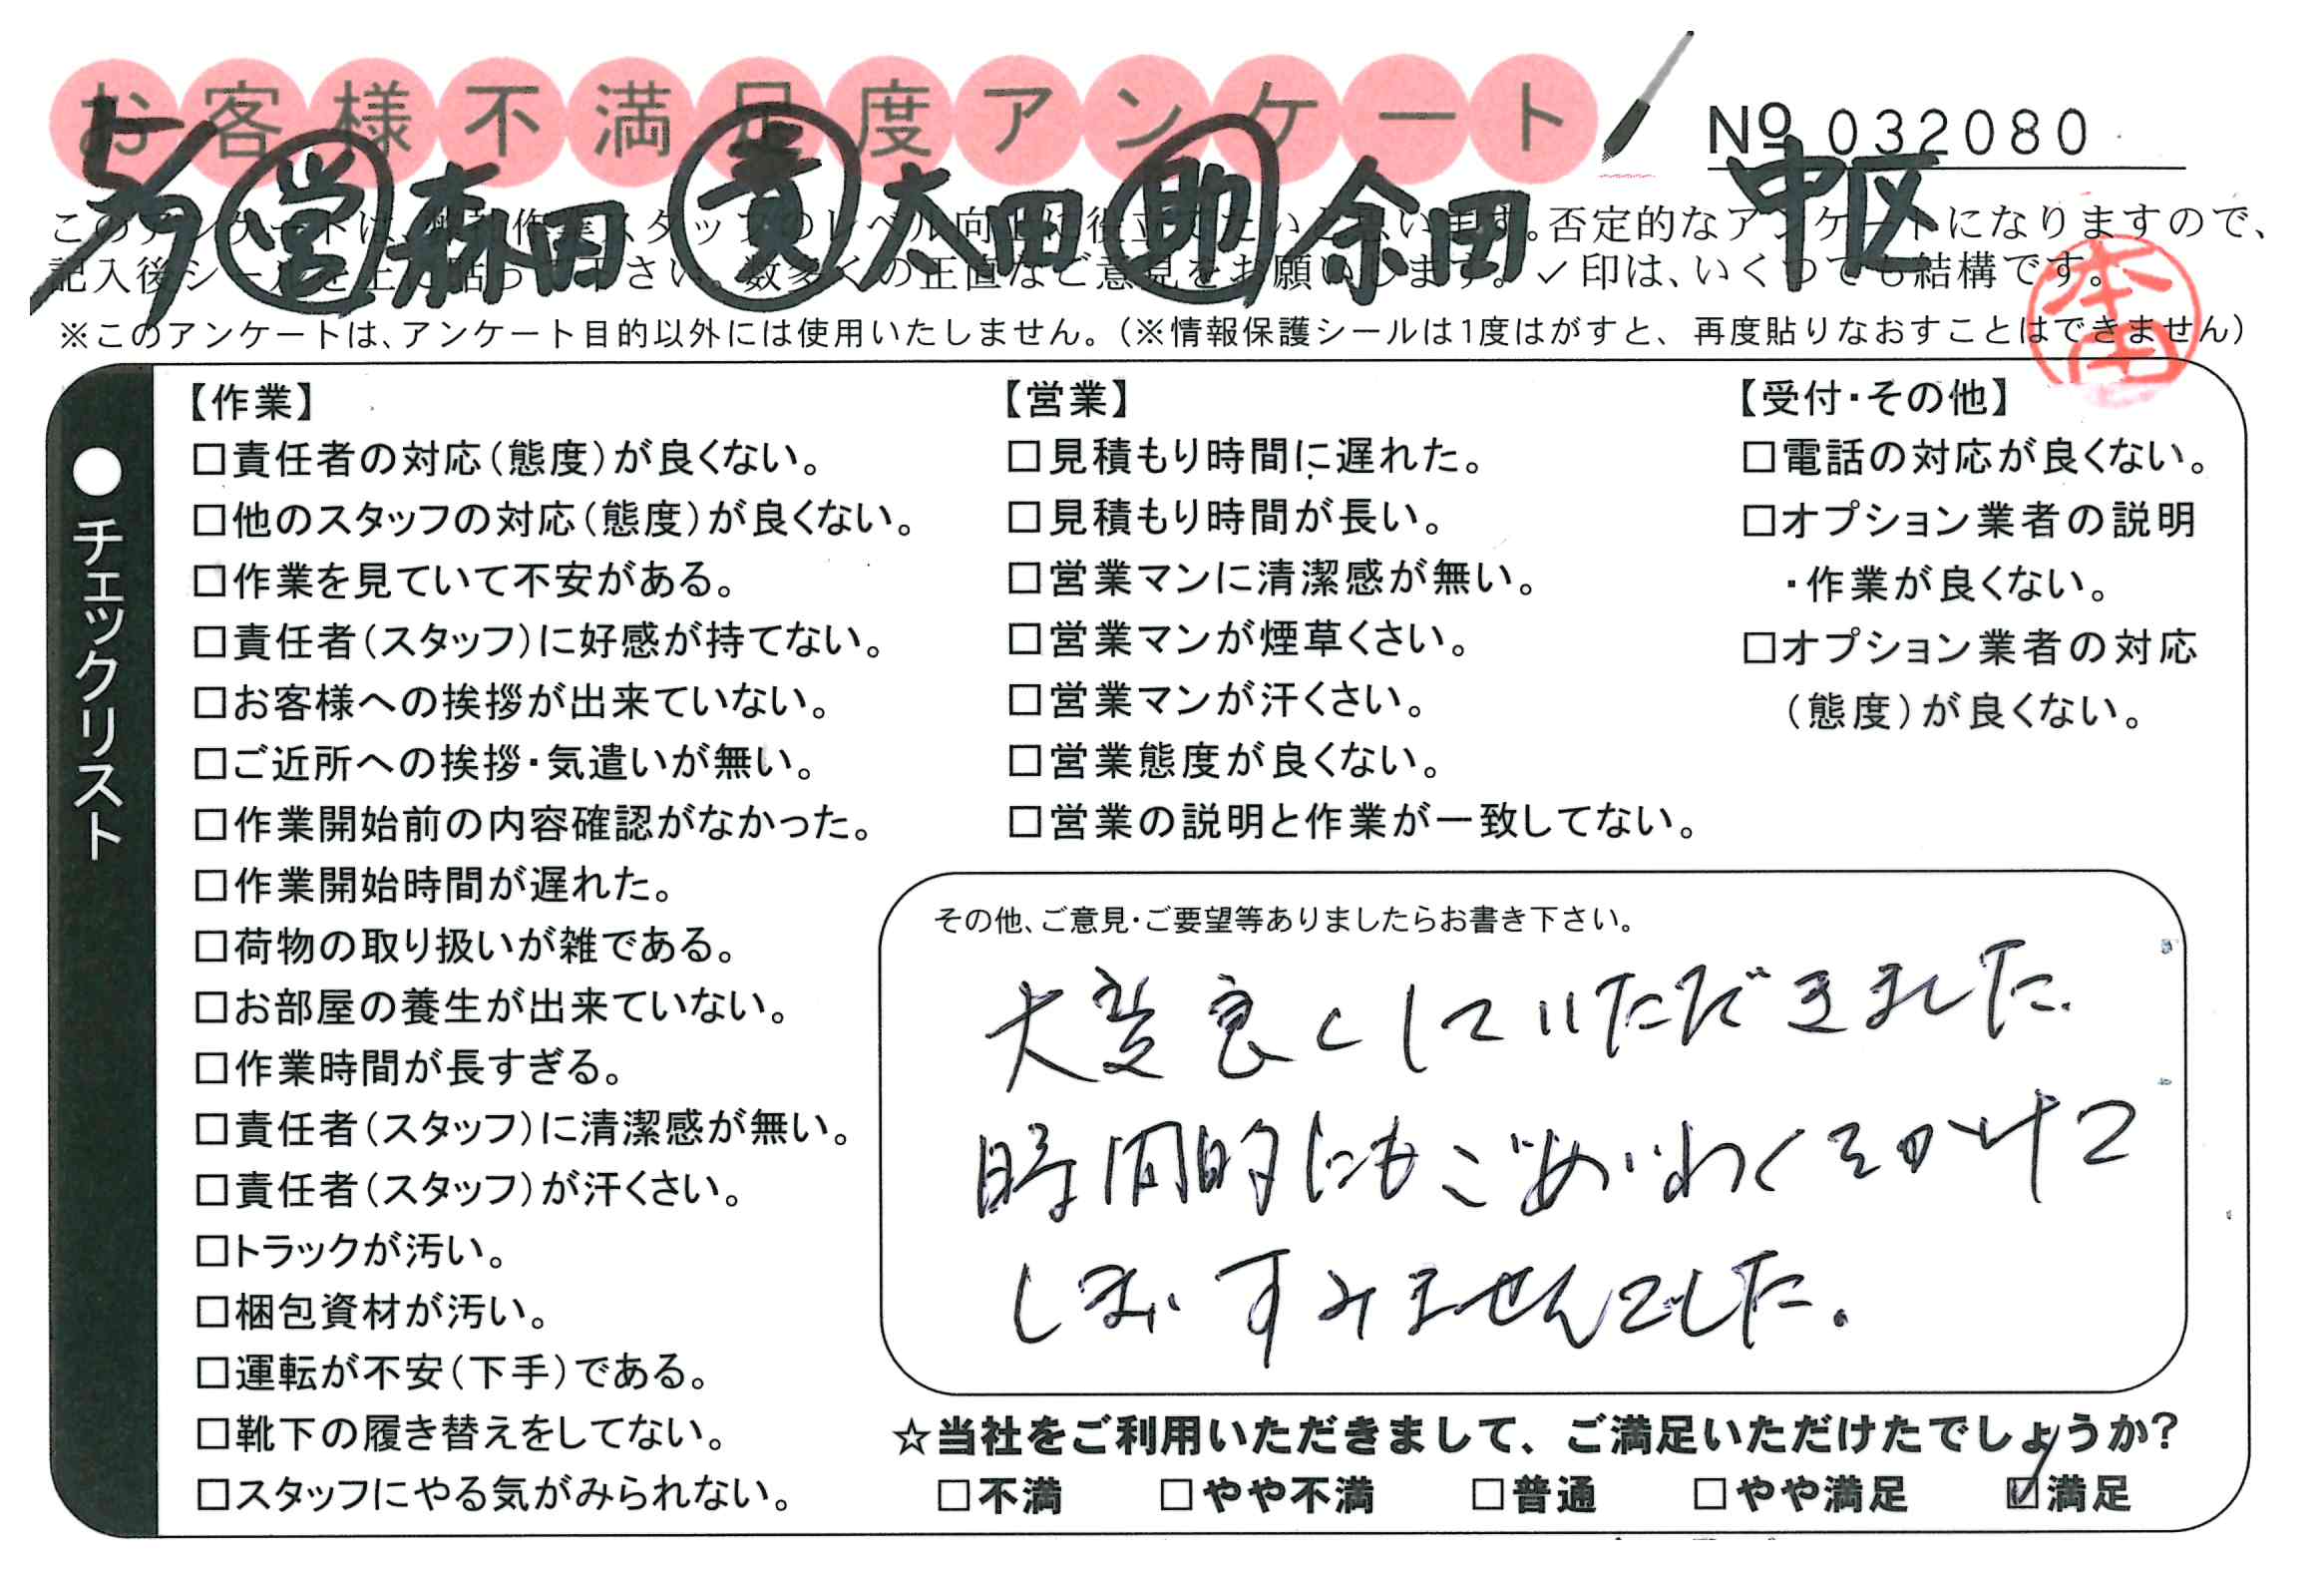 お客様不満足度アンケート
No 032080
5/9 営 森田 責 太田 助 余田 中区
このアンケートは、
スタッフのレベル向上に役立てたいと思います。否定的なアンケートになりますので、
記入後シールを上に貼って下さい。数多くの正直なご意見をお願いします。✓印は、いくつでも結構です。
※このアンケートは、アンケート目的以外には使用いたしません。(※情報保護シールは1度はがすと、再度貼りなおすことはできません)
●チェックリスト
【作業】
□責任者の対応(態度)が良くない。
□他のスタッフの対応(態度)が良くない。
□作業を見ていて不安がある。
□責任者(スタッフ)に好感が持てない。
□お客様への挨拶が出来ていない。
□ご近所への挨拶・気遣いが無い。
□作業開始前の内容確認がなかった。
□作業開始時間が遅れた。
□荷物の取り扱いが雑である。
□お部屋の養生が出来ていない。
□作業時間が長すぎる。
□責任者(スタッフ)に清潔感が無い。
□責任者(スタッフ)が汗くさい。
□トラックが汚い。
□梱包資材が汚い。
□運転が不安(下手)である。
□靴下の履き替えをしてない。
□スタッフにやる気がみられない。
【営業】
□見積もり時間に遅れた。
□見積もり時間が長い。
□営業マンに清潔感が無い。
□営業マンが煙草くさい。
□営業マンが汗くさい。
□営業態度が良くない。
□営業の説明と作業が一致してない。
【受付・その他】
□電話の対応が良くない。
□オプション業者の説明
・作業が良くない。
□オプション業者の対応
(態度)が良くない。
その他、ご意見・ご要望等ありましたらお書き下さい。
大変良くしていただきました
時間的にもごめいわくをかけて
しまいすみませんでした。
☆当社をご利用いただきまして、ご満足いただけたでしょうか?
□不満 □やや不満 □普通 □やや満足 ☑満足